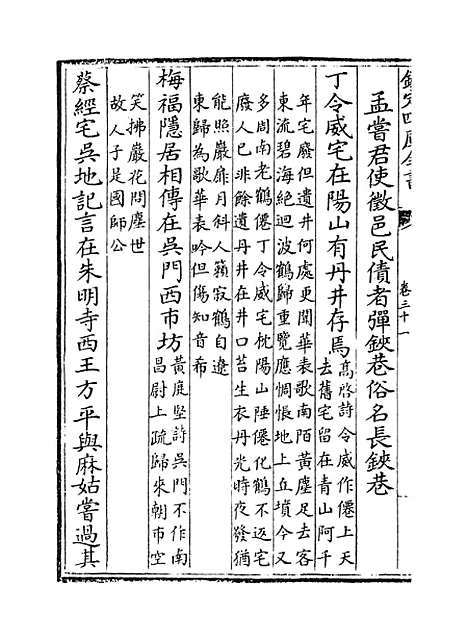 欽定四庫全書
卷三十一
孟嘗君使徵邑民債者彈鋏巷俗名長鋏巷
丁令威宅在陽山有丹井存焉
高啓詩令威作僊上天
去舊宅留在青山阿千
年宅廢但遺井何處更聞華表歌南陌黃塵足去客
東流碧海絕迴波鶴歸重覽應惆悵地上丘墳今又
多周南老鶴僊丁令威宅枕陽山陲僊化鶴不返宅
廢人已非餘遺丹井在井口苔生衣丹光時夜發猶
能照巖扉月斜人籟寂鶴自遼
東歸為歌華表吟但傷知音希
梅福隱居相傳在吳門西市坊
黃庭堅詩吳門不作南
昌尉上疏歸來朝市空
笑拂巖花問塵世
故人子是國師公
蔡經宅吳地記言在朱明寺西王方平與麻姑嘗過其